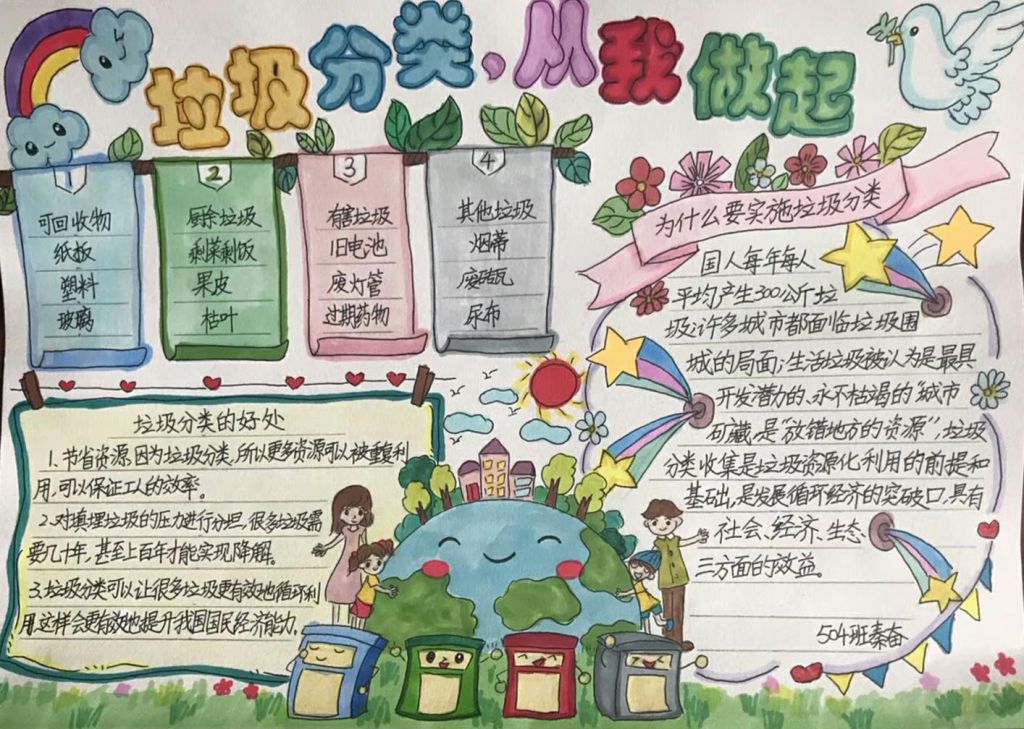 垃圾分类，从我做起
可回收物
纸板
塑料
玻璃
2
厨余垃圾
剩菜剩饭
果皮
枯叶
3
有害垃圾
旧电池
废灯管
过期药物
4
其他垃圾
烟蒂
废砖瓦
尿布
为什么要实施垃圾分类
国人每年每人
平均产生300公斤垃
圾;许多城市都面临垃圾围
城的局面;生活垃圾被认为是最具
开发潜力的、永不枯竭的"城市
矿藏,是"放错地方的资源",垃圾
分类收集是垃圾资源化利用的前提和
基础出,是发展循环经济的突破口,具有
社会、经济、生态
三方面的效益。
504班秦奋
垃圾分类的好处
1.节省资源,因为垃圾分类,所以更多资源可以被重复利
用,可以保证工人的效率。
2.对填埋垃圾的压力进行分担,很多垃圾需
要几十年,甚至上百年才能实现降解。
3.垃圾分类可以让很多垃圾更有效地循环利
用,这样会更有效地提升我国国民经济能力.